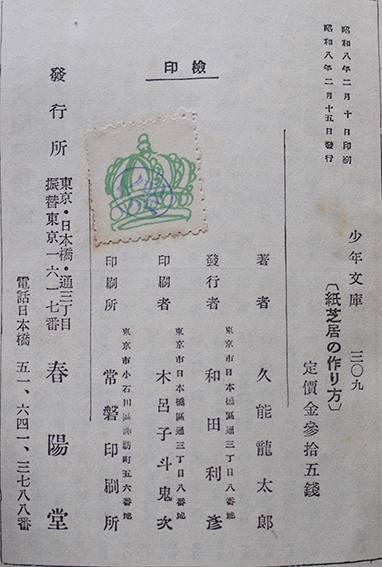 昭和八年二月十日印刷
昭和八年二月十五日發行
少年文庫 三〇九
〔紙芝居の作り方〕
定價金參拾五錢
檢印
著者 久能龍太郎
東京市日本橋區通三丁目八番地
發行者 和田利彥
東京市日本橋區通三丁目八番地
印刷者 木呂子斗鬼次
東京市小石川區諏訪町五六番地
印刷所 常磐印刷所
發行所 東京・日本橋・通三丁目
振替東京一六一一七番
春陽堂
電話日本橋 五一、六四一、三七八八番